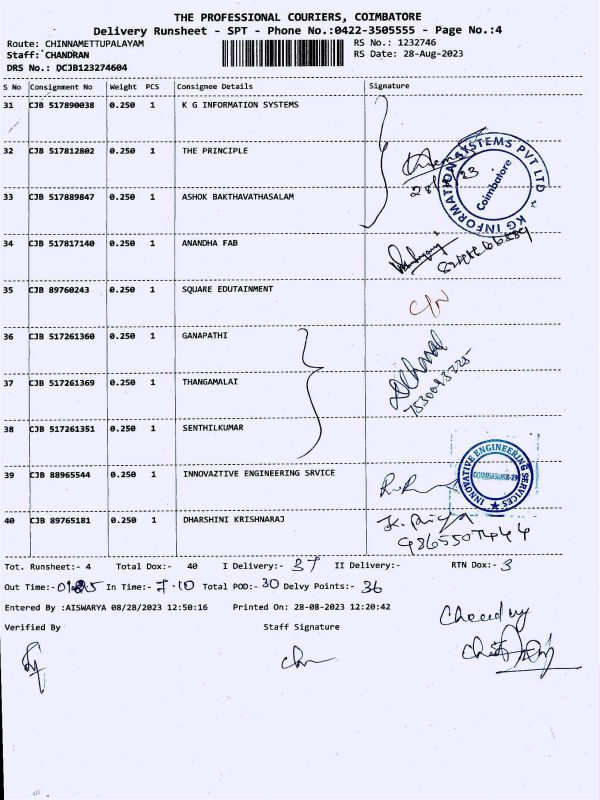 THE PROFESSIONAL COURIERS, COIMBATORE
Delivery Runsheet - SPT - Phone No.:0422-3505555 - Page No.:4
Route: CHINNAMETTUPALAYAM RS No.: 1232746
Staff: CHANDRAN RS Date: 28-Aug-2023
DRS No.: DCJB123274604
S No Consignment No Weight PCS Consignee Details Signature
31 CJB 517890038 0.250 1 K G INFORMATION SYSTEMS
32 CJB 517812802 0.250 1 THE PRINCIPLE
KG INFORMATION SYSTEMS PVT LTD
Coimbatore
33 CJB 517889847 0.250 1 ASHOK BAKTHAVATHASALAM
34 CJB 517817140 0.250 1 ANANDHA FAB
35 CJB 89760243 0.250 1 SQUARE EDUTAINMENT
36 CJB 517261360 0.250 1 GANAPATHI
37 CJB 517261369 0.250 1 THANGAMALAI
38 CJB 517261351 0.250 1 SENTHILKUMAR
39 CJB 88965544 0.250 1 INNOVAZTIVE ENGINEERING SRVICE
INNOVATIVE ENGINEERING SERVICES
40 CJB 89765181 0.250 1 DHARSHINI KRISHNARAJ
K. Priya
Tot. Runsheet:- 4 Total Dox:- 40 I Delivery:- 37 II Delivery:- RTN Dox:- 3
Out Time:- In Time:- 7-10 Total POD:- 30 Delvy Points:- 36
Entered By :AISWARYA 08/28/2023 12:50:16 Printed On: 28-08-2023 12:20:42
Verified By Staff Signature